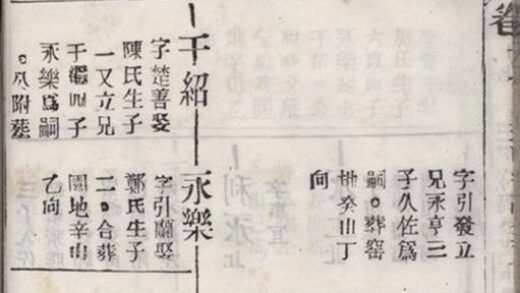 卷
字引發立
兄永亨三
子久佐爲
嗣。葬窑
坳癸山丁
向
于紹
字楚善娶
陳氏生子
一又立兄
于繼四子
永樂爲嗣
。附葬
永樂
字引蘭娶
鄭氏生子
二。合葬
園地辛山
乙向